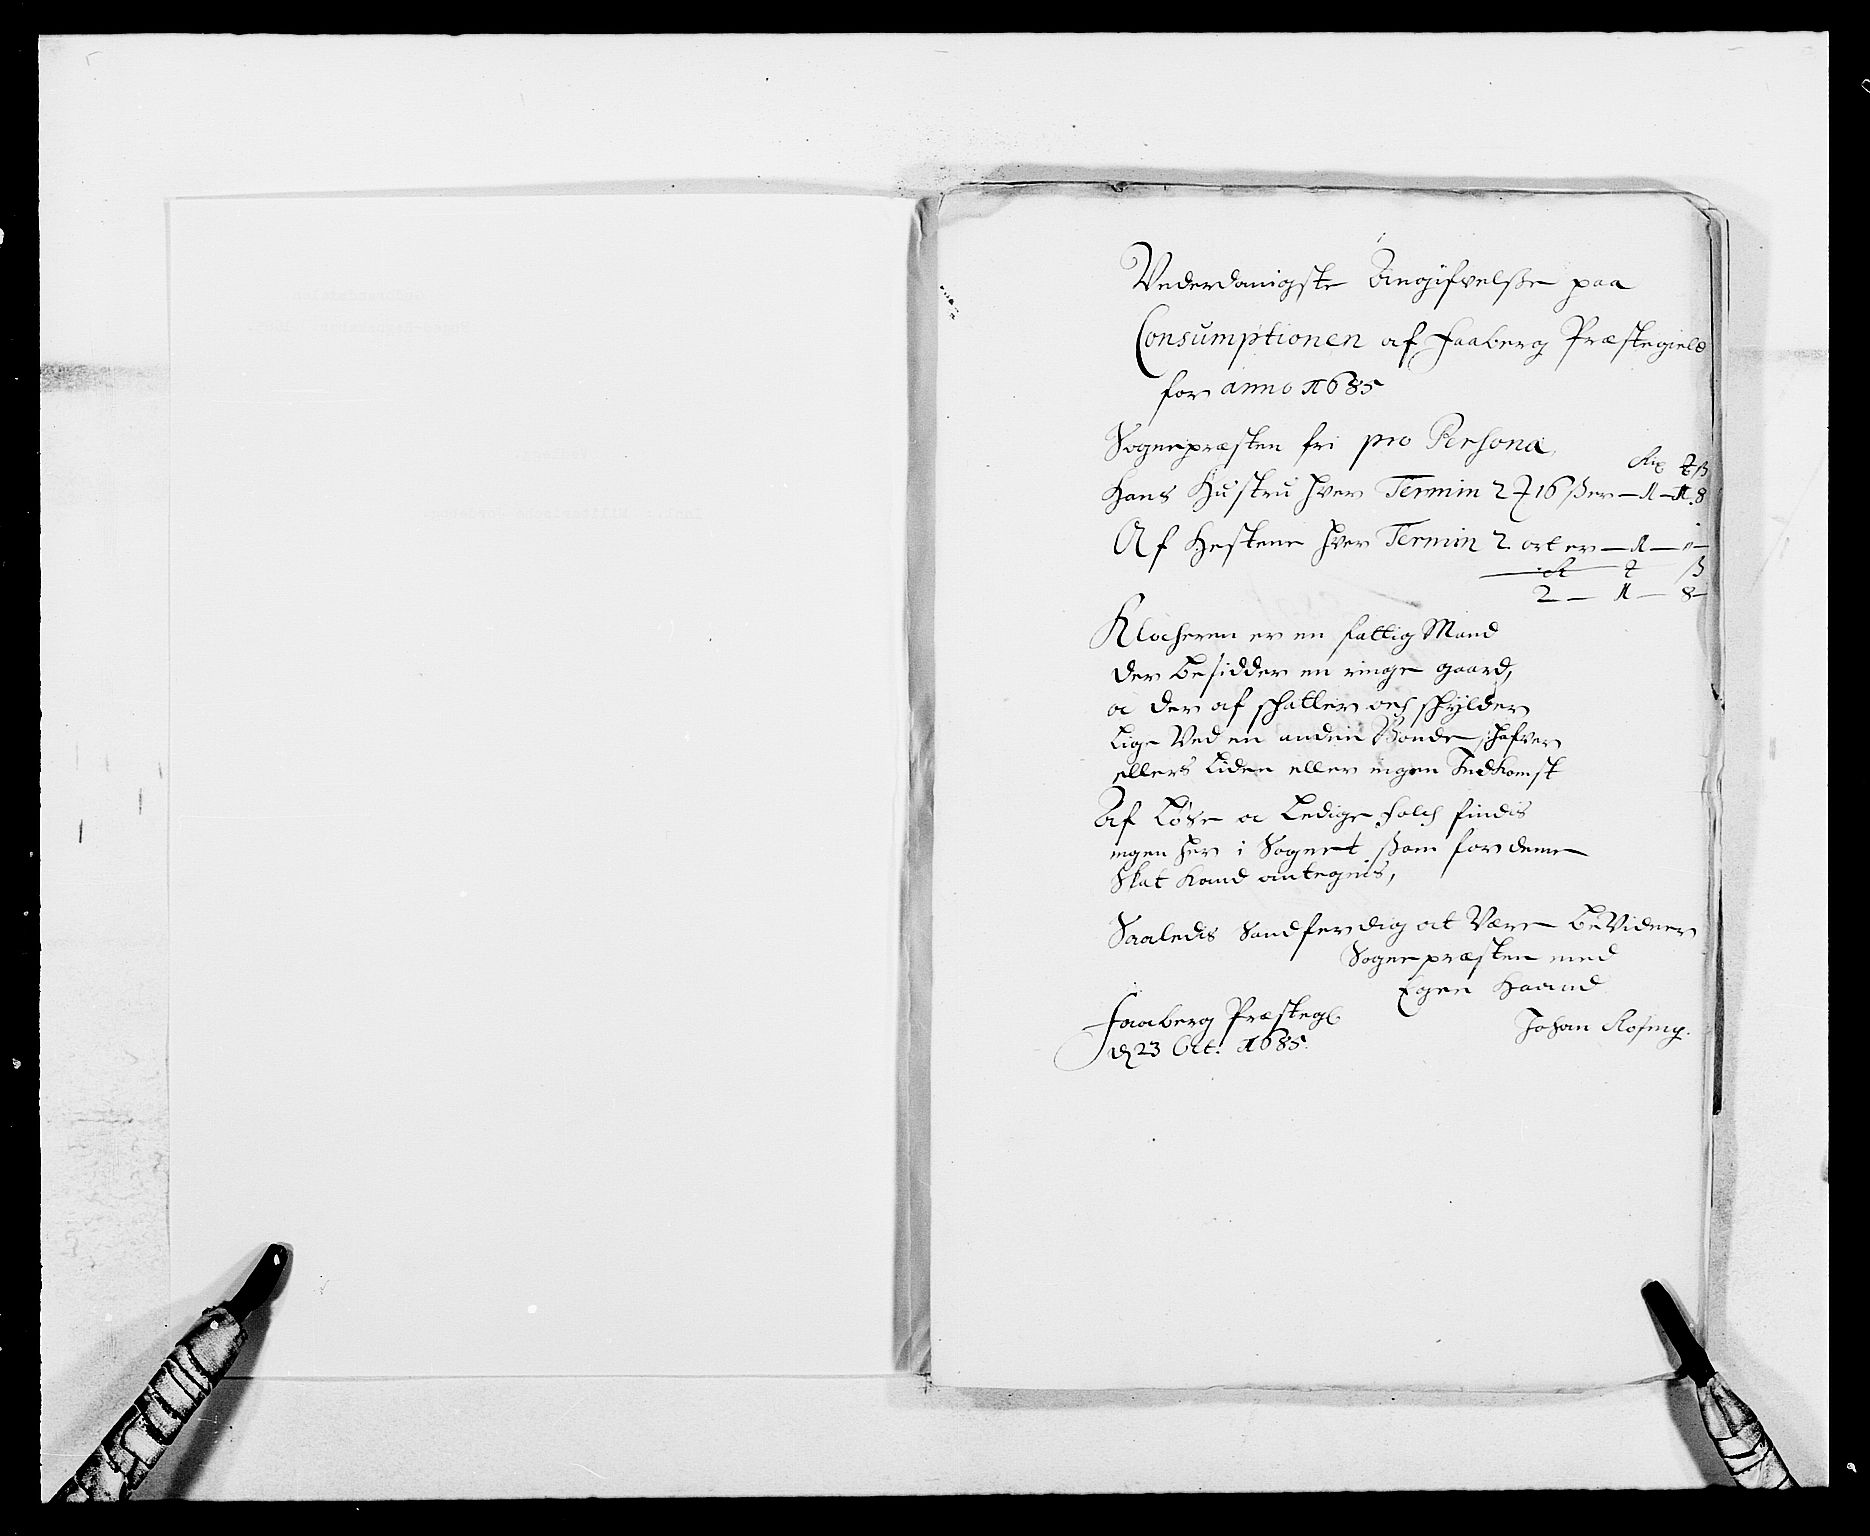 Vnderdanigste Angifvelsse paa
Consumptionen af Faaberg Præstegield
for anno 1685
Sognepræsten fri pro Persona,
Rix ß
Hans Hustru hver Termin 2 16 ß er — 1 — 1. 8
Af Hestene hver Termin 2 ort er — 1 —
ß
2 — 1 — 8
Klocheren er en fattig Mand
der besidder en ringe gaard,
oc der af schatter och schylder
lige Ved en anden Bonde, hafver
ellers liden eller ingen Indkomst
Af løse oc Ledige Folch findis
ingen her i Sognet ssom for denne
Skat kand antegnis,
Saaledis Sandferdig at Være beVidner
Sognepræsten med
Egen Haand
Faaberg Præstegl.
Johan Rosing.
d 23 Oct: 1685.